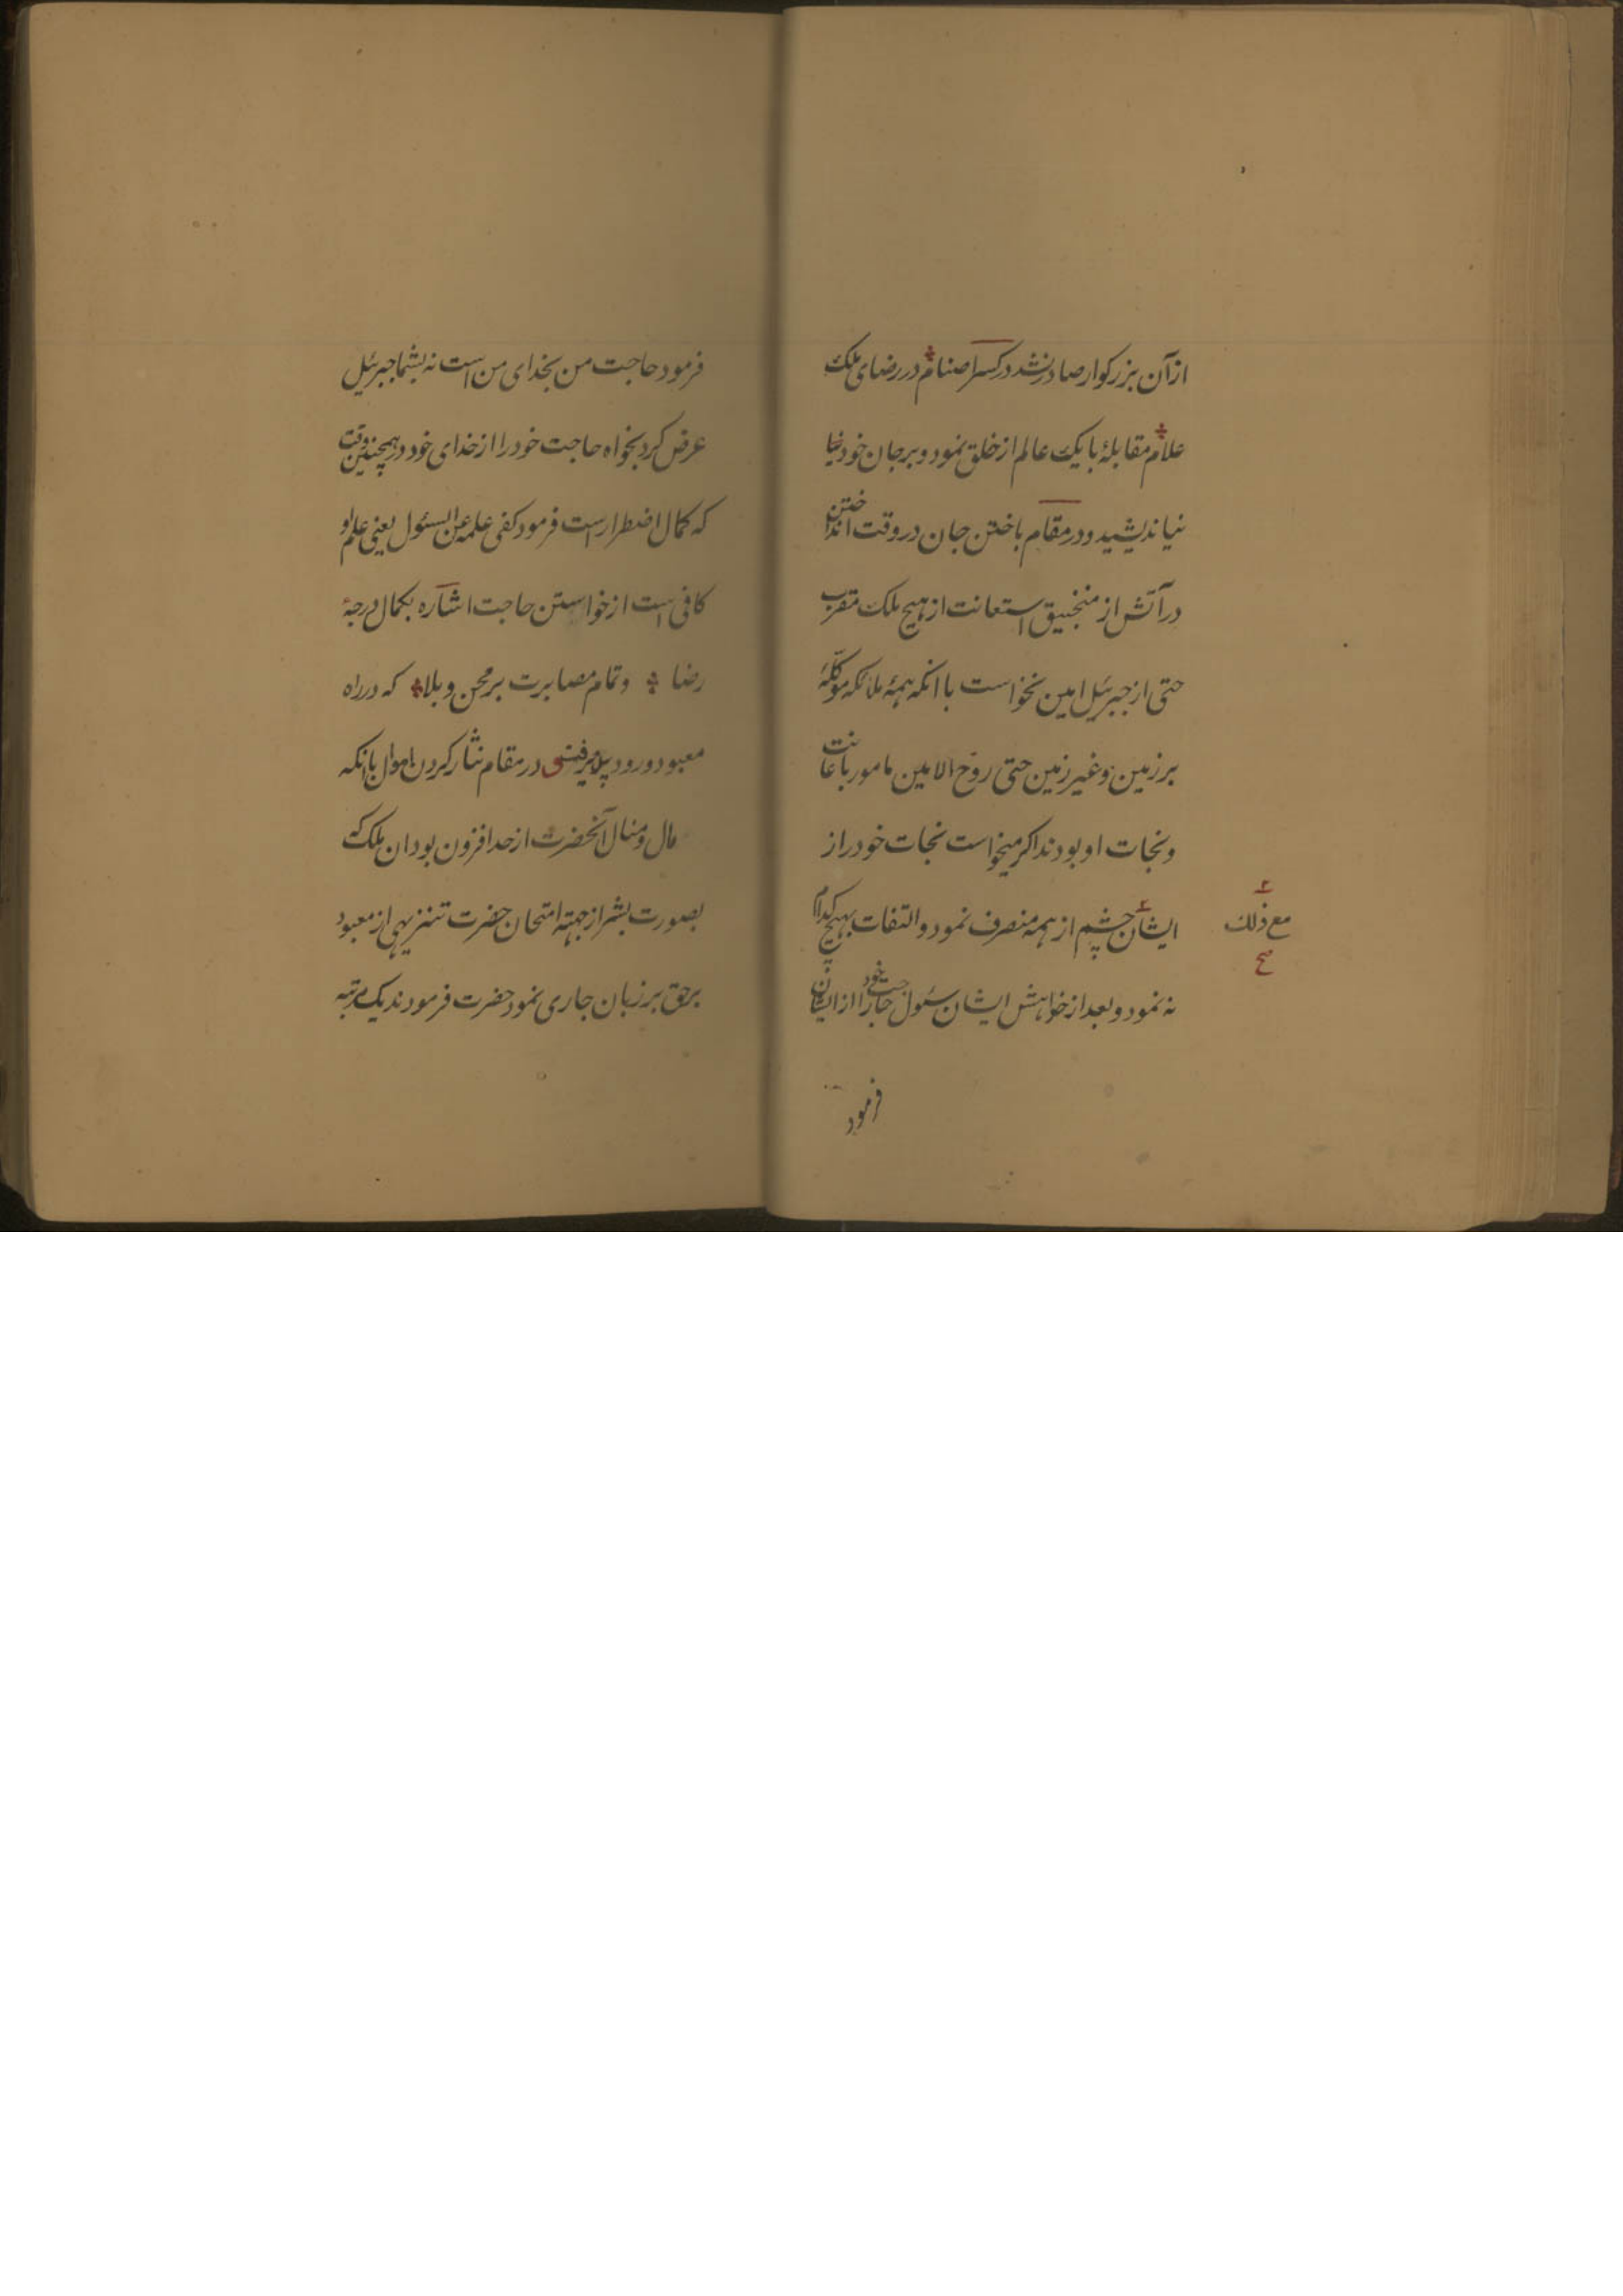 از آن بزرکوار صادر نشد در کسر اصنام در رضای ملک
علام مقابلهٔ با یک عالم از خلق نمود و بر جان خود
نیاندیشید و در مقام باختن جان در وقت انداختن
در آتش از منجنیق استعانت از هیچ ملک مقرب
حتی از جبرئیل امین نخواست با انکه همهٔ ملائکه موکلهٔ
بر زمین و غیر زمین حتی روح الامین مامور باعانت
و نجات او بودند اکر میخواست نجات خود را از
ایشان چشم از همه منصرف نمود و التفات بهیچ کدام
نه نمود و بعد از خواهش ایشان سئول حاجت خود را از ایشان
مع ذلک
صح
فرمود
فرمود حاجت من بخدای من است نه بشما جبرئیل
عرض کرد بخواه حاجت خود را از خدای خود در همچنین وقت
که کمال اضطرار است فرمود کفی علمه عن السئول یعنی علم او
کافی است از خواستن حاجت اشاره بکمال درجهٔ
رضا و تمام مصابرت بر محن و بلا که در راه
معبود ورود در مقام نثار کردن اموال باانکه
مال و منال آنحضرت از حد افزون بود ان ملک که
بصورت بشر از جهته امتحان حضرت تنزیهی از معبود
برحق بر زبان جاری نمود حضرت فرمودند یک مرتبه